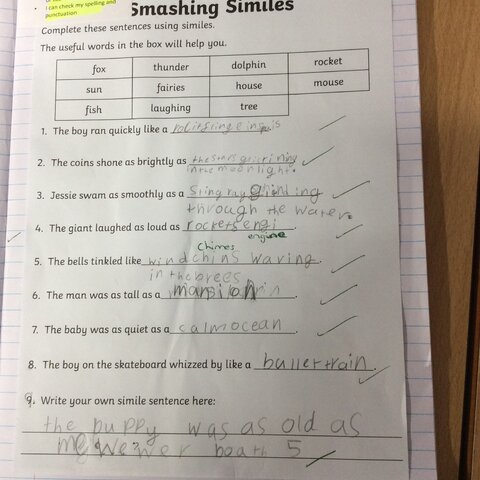 I can check my spelling and
punctuation
Smashing Similes
Complete these sentences using similes.
The useful words in the box will help you.
fox thunder dolphin rocket
sun fairies house mouse
fish laughing tree
1. The boy ran quickly like a
2. The coins shone as brightly as the stars
in the moonlight.
3. Jessie swam as smoothly as a Stingray
through the water.
4. The giant laughed as loud as rockets engi
engine
Chimes
5. The bells tinkled like windchins waving.
in the
6. The man was as tall as a mansion.
7. The baby was as quiet as a calm ocean.
8. The boy on the skateboard whizzed by like a bullertrain.
9. Write your own simile sentence here:
the puppy was as old as
me we wer boath 5